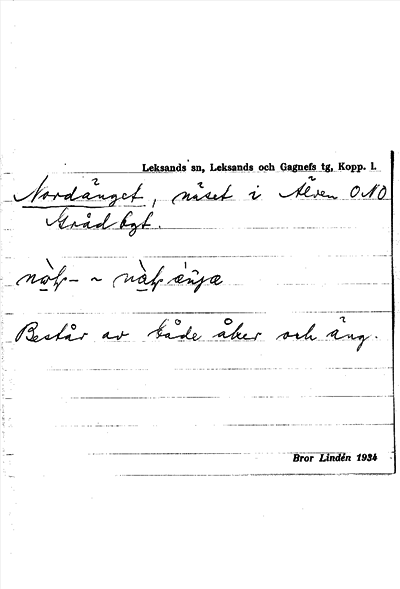 Leksands sn, Leksands och Gagnefs tg, Kopp. l.
Nordänget, näset i Älven ONO
Består av både åker och äng.
Bror Lindén 1934